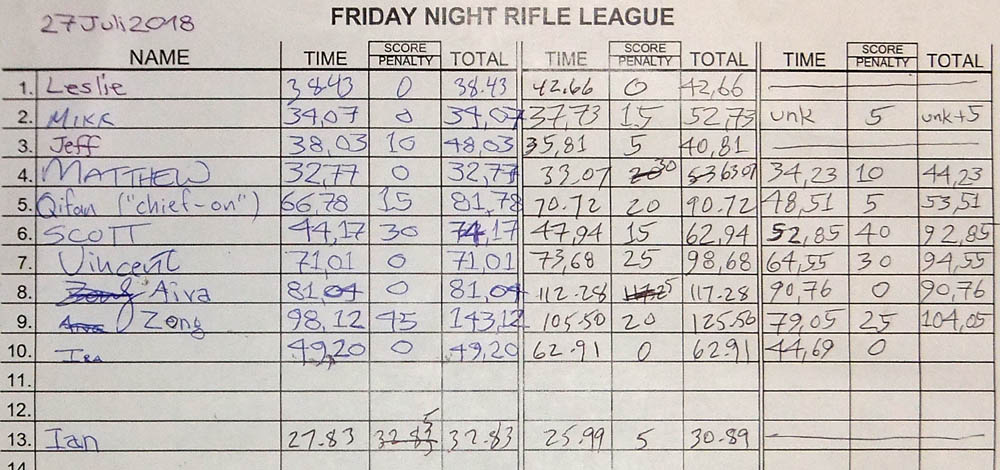 27 Juli 2018
FRIDAY NIGHT RIFLE LEAGUE
NAME TIME SCORE PENALTY TOTAL TIME SCORE PENALTY TOTAL TIME SCORE PENALTY TOTAL
1. Leslie 38.43 0 38.43 42.66 0 42,66
2. MIKE 34,07 0 34,07 37,73 15 52,73 unk 5 unk+5
3. Jeff 38,03 10 48,03 35,81 5 40,81
4. MATTHEW 32,77 0 32,77 33,07 30 63,07 34,23 10 44,23
5. Qifan ("chief-on") 66,78 15 81,78 70.72 20 90.72 48,51 5 53,51
6. SCOTT 44,17 30 74,17 47,94 15 62,94 52,85 40 92,85
7. Vincent 71,01 0 71,01 73,68 25 98,68 64,55 30 94,55
8. Aiva 81,04 0 81,04 112.28 5 117.28 90,76 0 90,76
9. Zong 98,12 45 143,12 105.50 20 125.50 79,05 25 104,05
10. Ira 49,20 0 49,20 62.91 0 62.91 44,69 0
11.
12.
13. Ian 27.83 5 32.83 25.99 5 30.89
14.